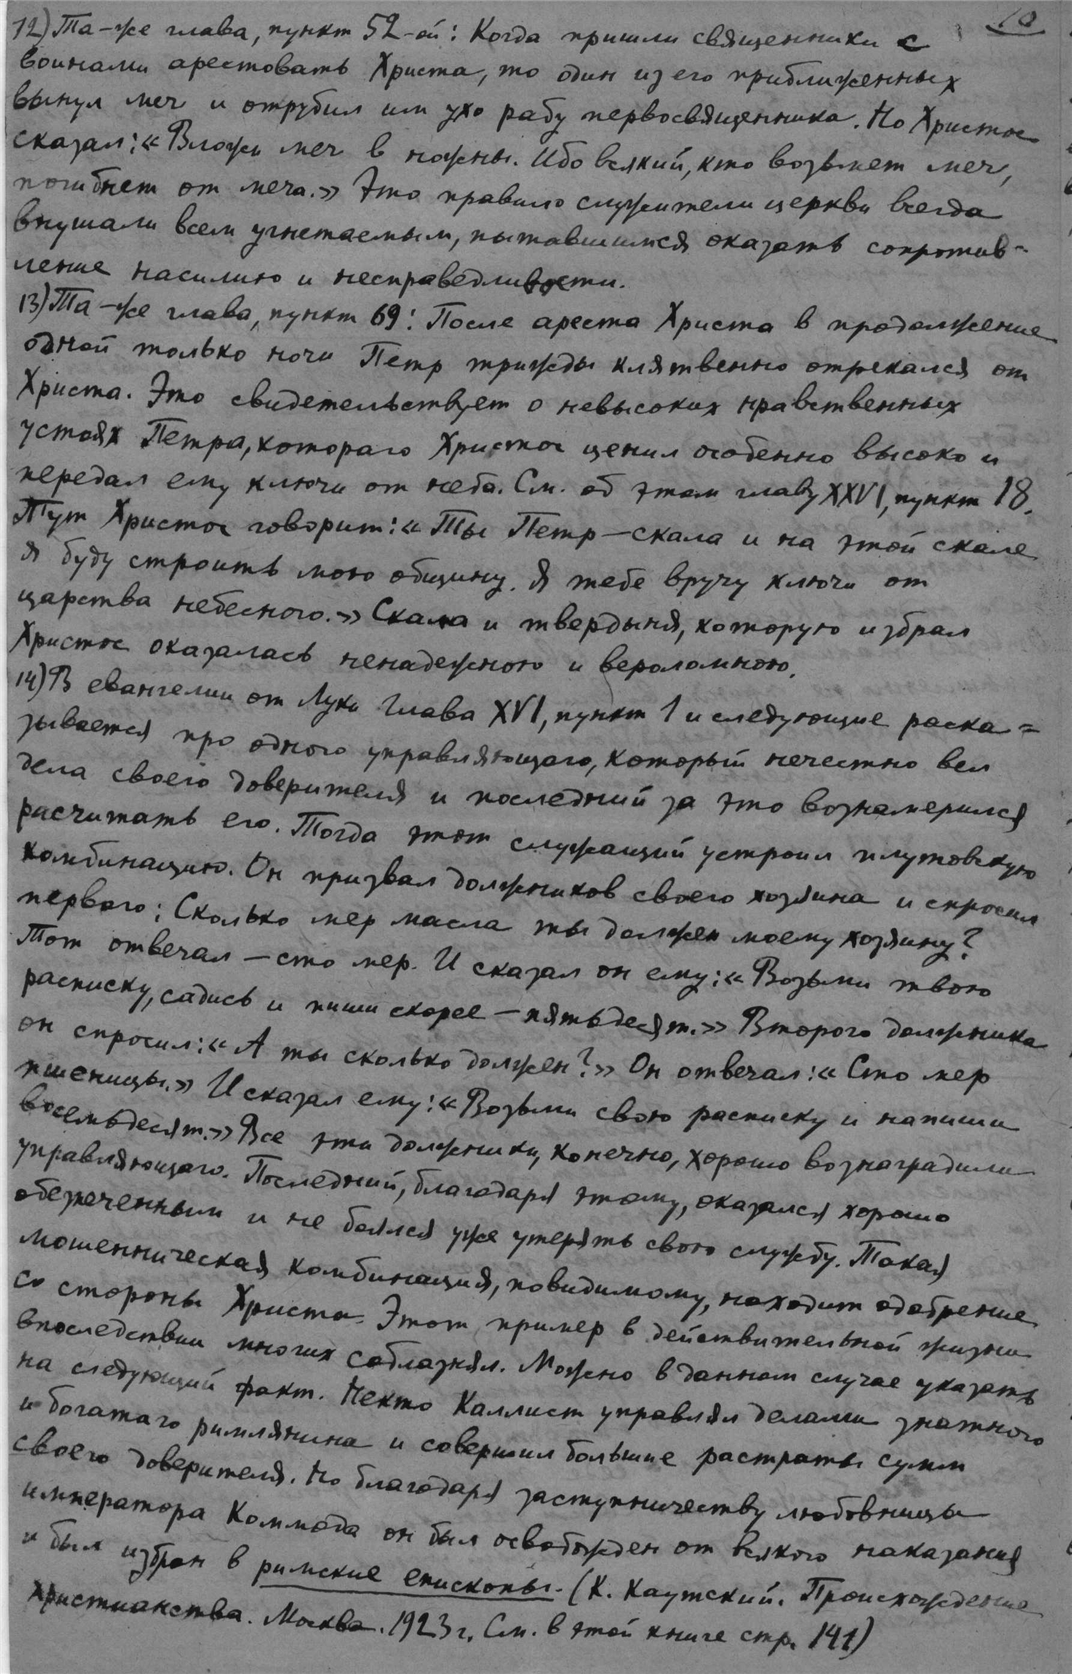 10
12) Та-же глава, пункт 52-ой: Когда пришли священники с
воинами арестовать Христа, то один из его приближенных
вынул меч и отрубил им ухо рабу первосвященника. Но Христос
сказал: «Вложи меч в ножны. Ибо всякий, кто возьмет меч,
погибнет от меча.» Это правило служители церкви всегда
внушали всем угнетаемым, пытавшимся оказать сопротив-
ление насилию и несправедливости.
13) Та-же глава, пункт 69: После ареста Христа в продолжение
одной только ночи Петр трижды клятвенно отрекался от
Христа. Это свидетельствует о невысоких нравственных
устоях Петра, котораго Христос ценил особенно высоко и
передал ему ключи от неба. См. об этом главу XXVI, пункт 18.
Тут Христос говорит: «Ты Петр — скала и на этой скале
я буду строить мою общину. Я тебе вручу ключи от
царства небесного.» Скала и твердыня, которую избрал
Христос оказалась ненадежною и вероломною.
14) В евангелии от Луки Глава XVI, пункт 1 и следующие раска=
зывается про одного управляющаго, который нечестно вел
дела своего доверителя и последний за это вознамерился
расчитать его. Тогда этот служащий устроил плутовскую
комбинацию. Он призвал должников своего хозяина и спросил
перваго: Сколько мер масла ты должен моему хозяину?
Тот отвечал — сто мер. И сказал он ему: «Возьми твою
расписку, садись и пиши скорее — пятьдесят.» Второго должника
он спросил: «А ты сколько должен?» Он отвечал: «Сто мер
пшеницы.» И сказал ему: «Возьми свою расписку и напиши
восемьдесят.» Все эти должники, конечно, хорошо вознаградили
управляющаго. Последний, благодаря этому, оказался хорошо
обезпеченным и не боялся уже утерять свою службу. Такая
мошенническая комбинация, повидимому, находит одобрение
со стороны Христа. Этот пример в действительной жизни
впоследствии многих соблазнял. Можно в данном случае указать
на следующий факт. Некто Каллист управлял делами знатного
и богатаго римлянина и совершил большие растраты сумм
своего доверителя. Но благодаря заступничеству любовницы
императора Коммода он был освобожден от всякого наказания
и был избран в римские епископы. (К. Каутский. Происхождение
Христианства. Москва. 1923 г. См. в этой книге стр. 141)